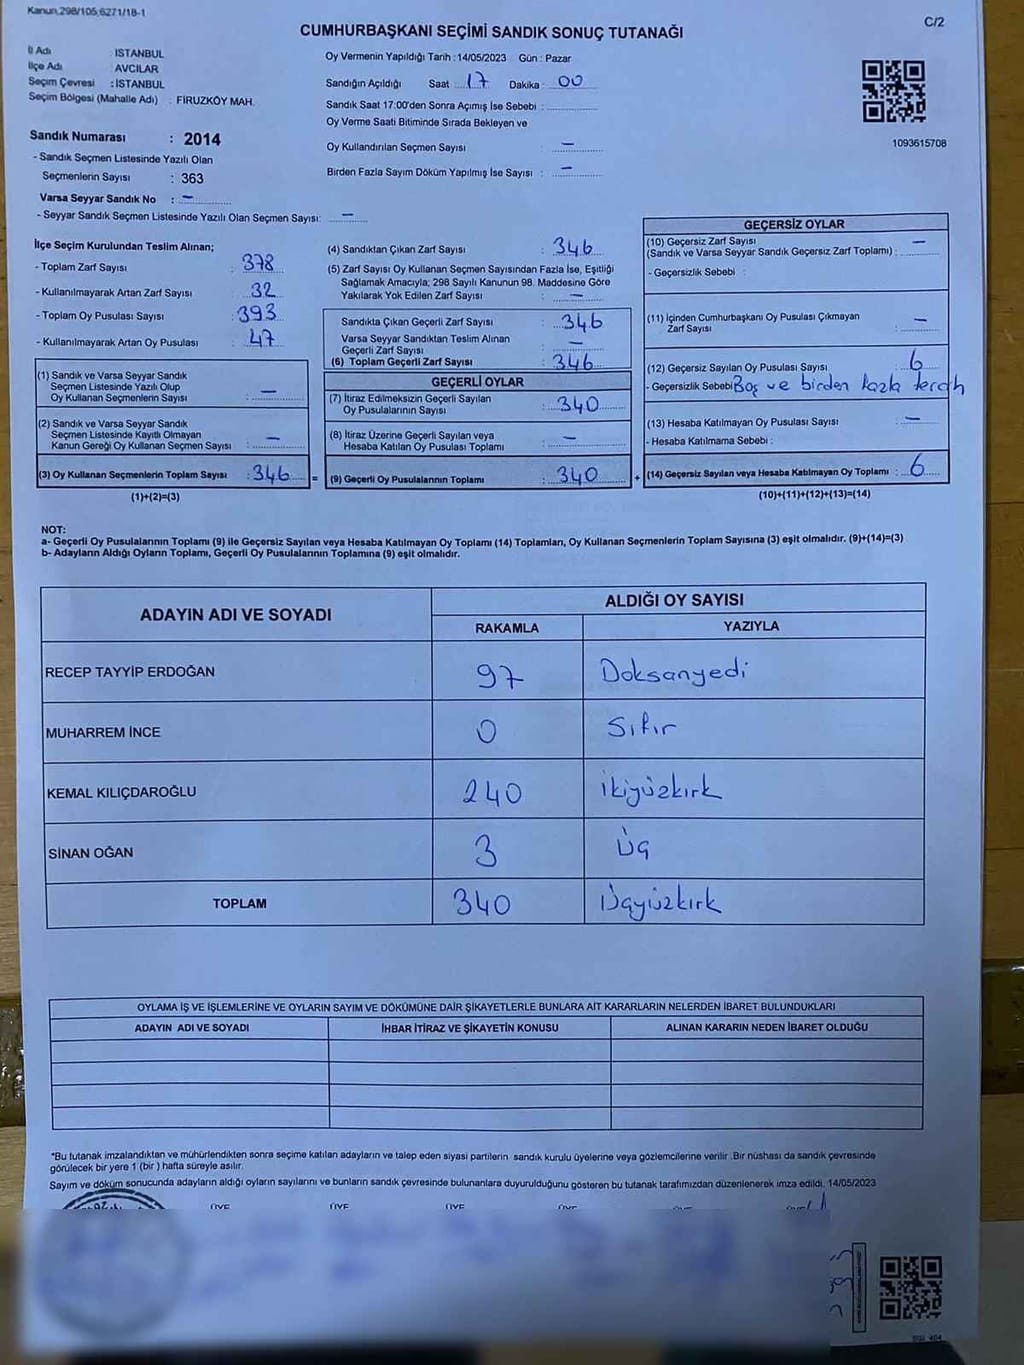 Kanun,298/105,6271/18-1
C/2
CUMHURBAŞKANI SEÇİMİ SANDIK SONUÇ TUTANAĞI
İl Adı : İSTANBUL
İlçe Adı : AVCILAR
Seçim Çevresi : İSTANBUL
Seçim Bölgesi (Mahalle Adı) : FİRUZKÖY MAH.
Oy Vermenin Yapıldığı Tarih : 14/05/2023 Gün : Pazar
Sandığın Açıldığı Saat : 17 Dakika : 00
Sandık Saat 17:00'den Sonra Açımış İse Sebebi :
Oy Verme Saati Bitiminde Sırada Bekleyen ve
Oy Kullandırılan Seçmen Sayısı : —
Birden Fazla Sayım Döküm Yapılmış İse Sayısı : —
1093615708
Sandık Numarası : 2014
- Sandık Seçmen Listesinde Yazılı Olan
Seçmenlerin Sayısı : 363
Varsa Seyyar Sandık No : —
- Seyyar Sandık Seçmen Listesinde Yazılı Olan Seçmen Sayısı: —
İlçe Seçim Kurulundan Teslim Alınan;
- Toplam Zarf Sayısı : 378
- Kullanılmayarak Artan Zarf Sayısı : 32
- Toplam Oy Pusulası Sayısı : 393
- Kullanılmayarak Artan Oy Pusulası : 47
(1) Sandık ve Varsa Seyyar Sandık
Seçmen Listesinde Yazılı Olup
Oy Kullanan Seçmenlerin Sayısı : —
(2) Sandık ve Varsa Seyyar Sandık
Seçmen Listesinde Kayıtlı Olmayan
Kanun Gereği Oy Kullanan Seçmen Sayısı : —
(3) Oy Kullanan Seçmenlerin Toplam Sayısı : 346 =
(1)+(2)=(3)
(4) Sandıktan Çıkan Zarf Sayısı : 346
(5) Zarf Sayısı Oy Kullanan Seçmen Sayısından Fazla İse, Eşitliği
Sağlamak Amacıyla; 298 Sayılı Kanunun 98. Maddesine Göre
Yakılarak Yok Edilen Zarf Sayısı : —
Sandıkta Çıkan Geçerli Zarf Sayısı : 346
Varsa Seyyar Sandıktan Teslim Alınan
Geçerli Zarf Sayısı : —
(6) Toplam Geçerli Zarf Sayısı : 346
GEÇERLİ OYLAR
(7) İtiraz Edilmeksizin Geçerli Sayılan
Oy Pusulalarının Sayısı : 340
(8) İtiraz Üzerine Geçerli Sayılan veya
Hesaba Katılan Oy Pusulası Toplamı : —
(9) Geçerli Oy Pusulalarının Toplamı : 340 +
GEÇERSİZ OYLAR
(10) Geçersiz Zarf Sayısı
(Sandık ve Varsa Seyyar Sandık Geçersiz Zarf Toplamı) : —
- Geçersizlik Sebebi :
(11) İçinden Cumhurbaşkanı Oy Pusulası Çıkmayan
Zarf Sayısı : —
(12) Geçersiz Sayılan Oy Pusulası Sayısı : 6
- Geçersizlik Sebebi Boş ve birden fazla tercih
(13) Hesaba Katılmayan Oy Pusulası Sayısı : —
- Hesaba Katılmama Sebebi :
(14) Geçersiz Sayılan veya Hesaba Katılmayan Oy Toplamı : 6
(10)+(11)+(12)+(13)=(14)
NOT:
a- Geçerli Oy Pusulalarının Toplamı (9) ile Geçersiz Sayılan veya Hesaba Katılmayan Oy Toplamı (14) Toplamları, Oy Kullanan Seçmenlerin Toplam Sayısına (3) eşit olmalıdır. (9)+(14)=(3)
b- Adayların Aldığı Oyların Toplamı, Geçerli Oy Pusulalarının Toplamına (9) eşit olmalıdır.
ADAYIN ADI VE SOYADI
ALDIĞI OY SAYISI
RAKAMLA YAZIYLA
RECEP TAYYİP ERDOĞAN 97 Doksanyedi
MUHARREM İNCE 0 Sıfır
KEMAL KILIÇDAROĞLU 240 ikiyüzkırk
SİNAN OĞAN 3 Üç
TOPLAM 340 Üçyüzkırk
OYLAMA İŞ VE İŞLEMLERİNE VE OYLARIN SAYIM VE DÖKÜMÜNE DAİR ŞİKAYETLERLE BUNLARA AİT KARARLARIN NELERDEN İBARET BULUNDUKLARI
ADAYIN ADI VE SOYADI İHBAR İTİRAZ VE ŞİKAYETİN KONUSU ALINAN KARARIN NEDEN İBARET OLDUĞU
*Bu tutanak imzalandıktan ve mühürlendikten sonra seçime katılan adayların ve talep eden siyasi partilerin sandık kurulu üyelerine veya gözlemcilerine verilir .Bir nüshası da sandık çevresinde
görülecek bir yere 1 (bir ) hafta süreyle asılır.
Sayım ve döküm sonucunda adayların aldığı oyların sayılarını ve bunların sandık çevresinde bulunanlara duyurulduğunu gösteren bu tutanak tarafımızdan düzenlenerek imza edildi. 14/05/2023
ÜYE ÜYE ÜYE